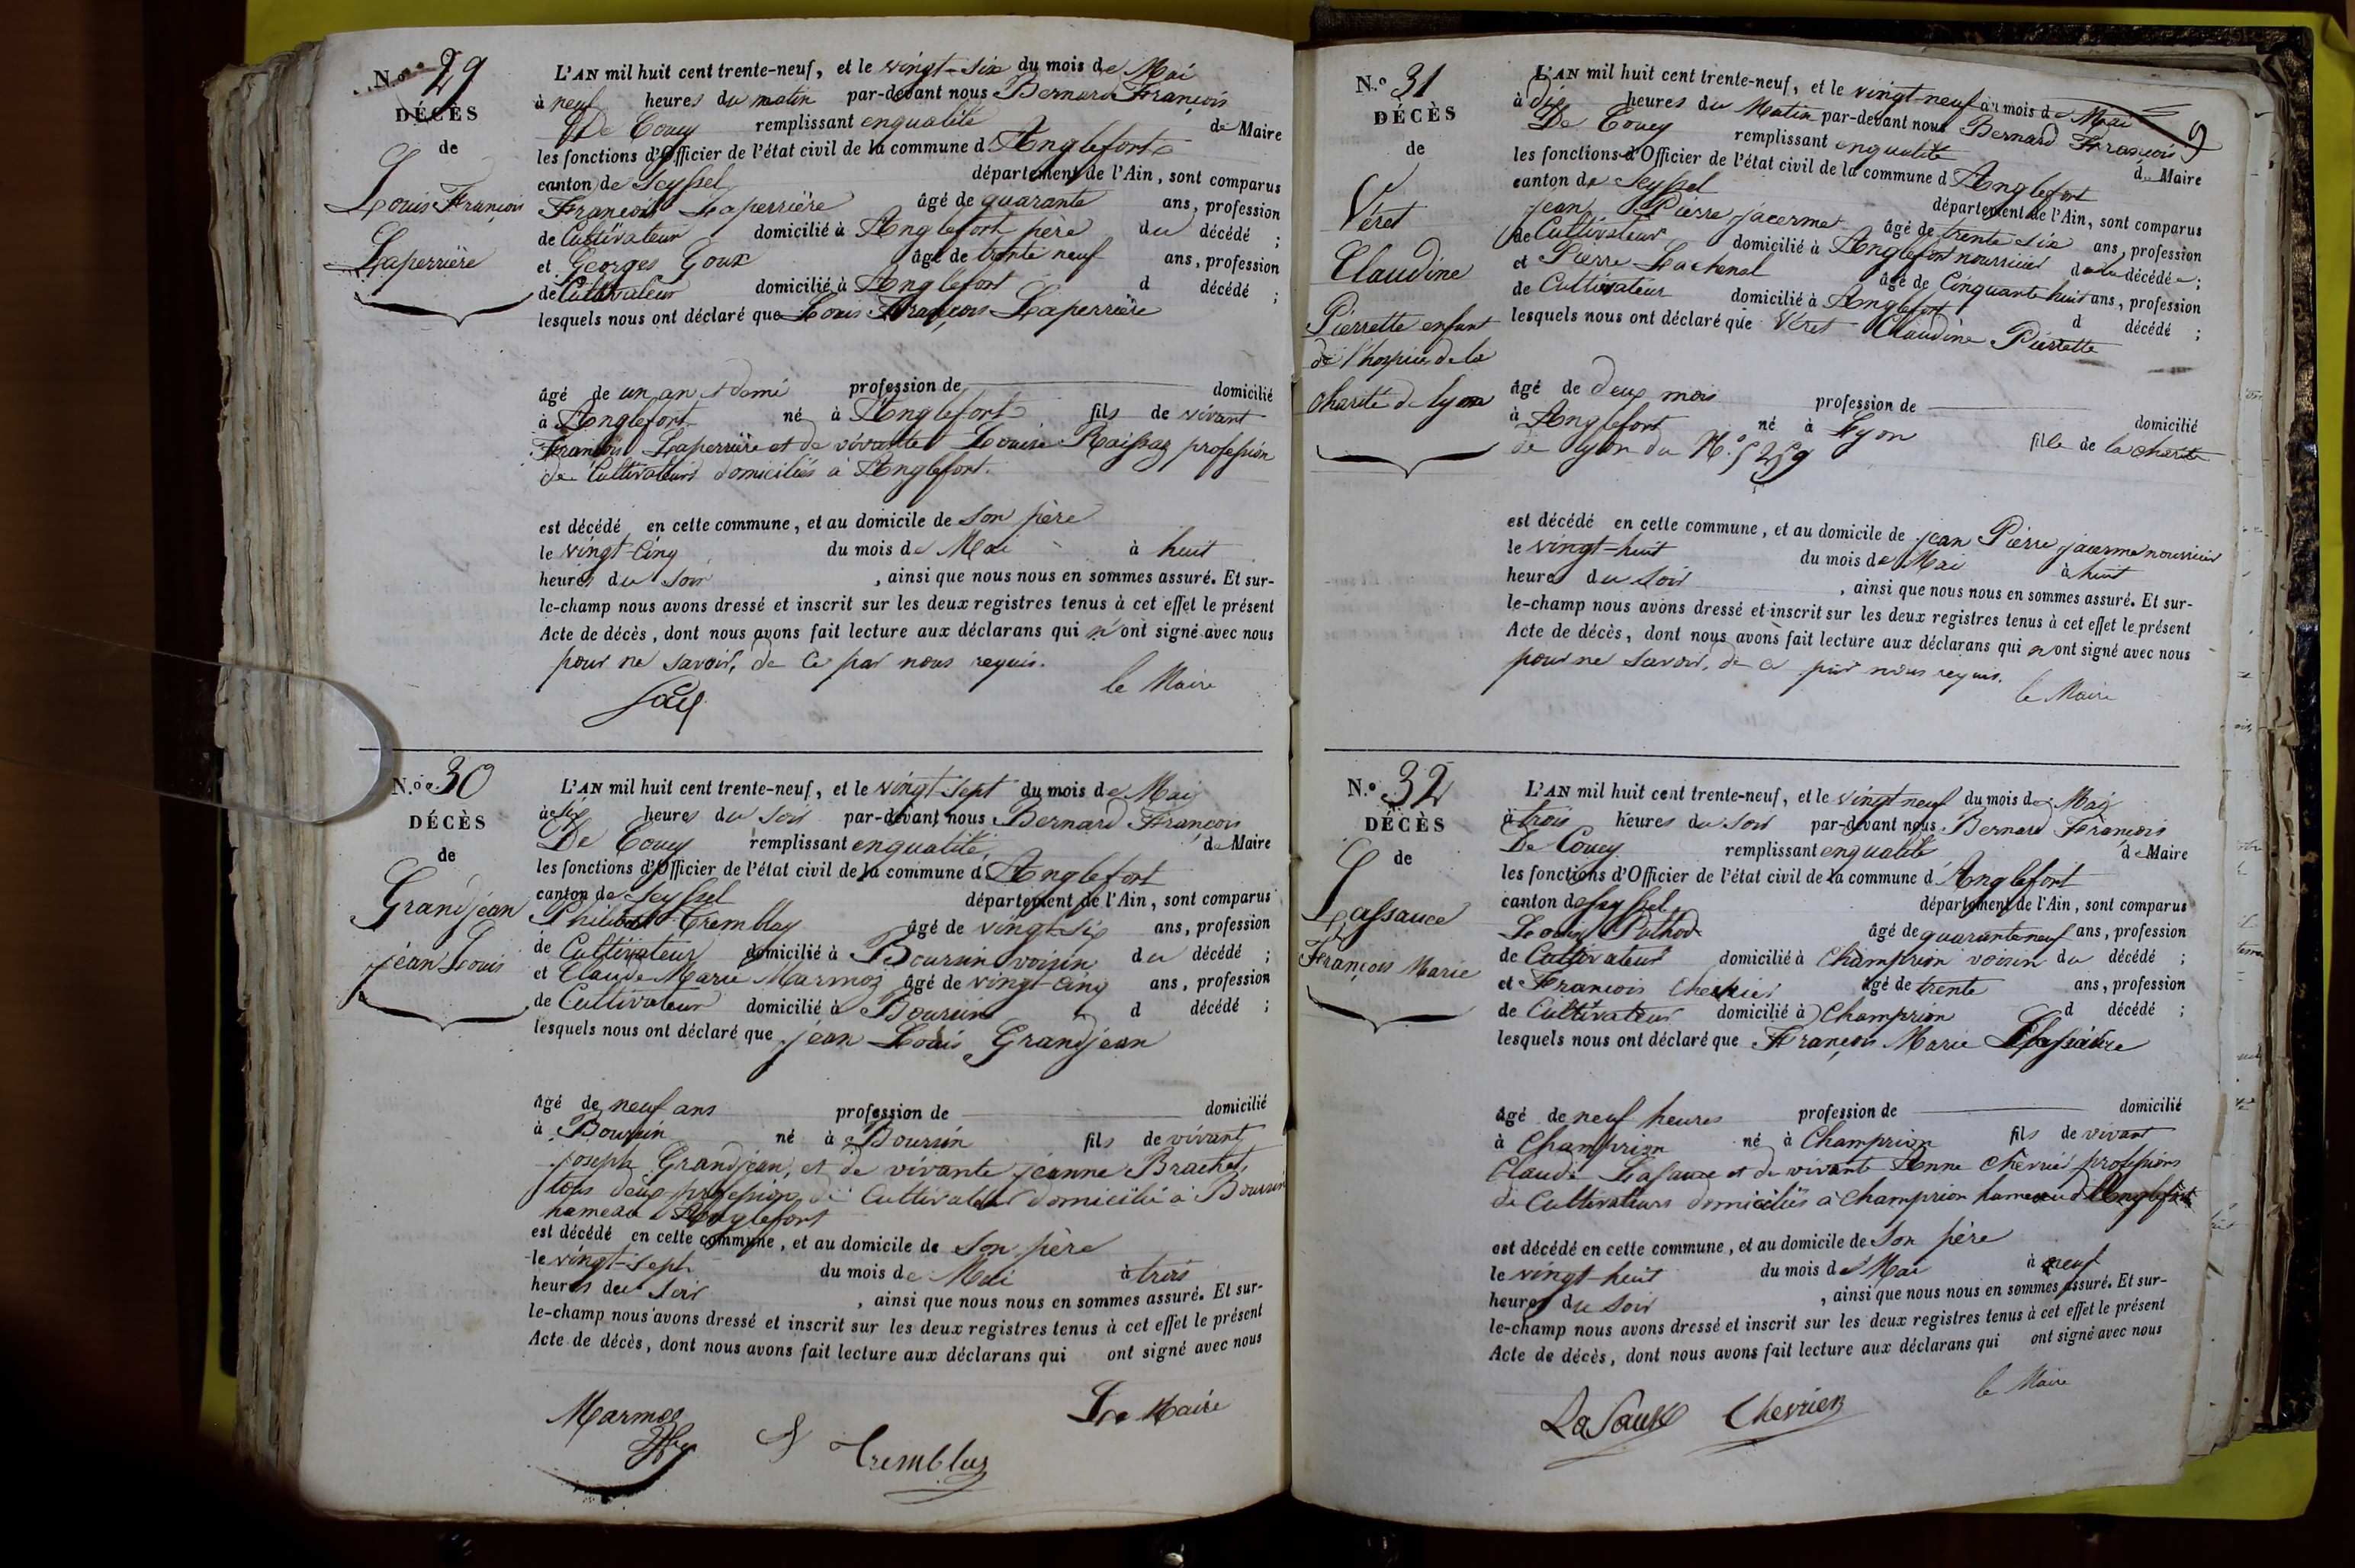 N.º 29
DÉCÈS
de
Louis François
Laperrière
L'AN mil huit cent trente-neuf, et le vingt-six du mois de Mai
à neuf heures du matin par-devant nous Bernard François
De Coucy remplissant en qualité de Maire
les fonctions d'Officier de l'état civil de la commune d'Anglefort
canton de Seyssel département de l'Ain, sont comparus
François Laperrière âgé de quarante ans, profession
de Cultivateur domicilié à Anglefort père du décédé ;
et Georges Goux âgé de trente neuf ans, profession
de Cultivateur domicilié à Anglefort d décédé ;
lesquels nous ont déclaré que Louis François Laperrière
âgé de un an et demi profession de domicilié
à Anglefort né à Anglefort fils de vivant
François Laperrière et de vivante Louise Raissaz profession
de Cultivateurs domiciliés à Anglefort.
est décédé en cette commune, et au domicile de son père
le vingt-cinq du mois de Mai à huit
heures du soir , ainsi que nous nous en sommes assuré. Et sur-
le-champ nous avons dressé et inscrit sur les deux registres tenus à cet effet le présent
Acte de décès, dont nous avons fait lecture aux déclarans qui n'ont signé avec nous
pour ne savoir, de ce par nous requis.
le Maire
N.º 30
DÉCÈS
de
Grandjean
jean Louis
L'AN mil huit cent trente-neuf, et le vingt-sept du mois de Mai
à six heures du soir par-devant nous Bernard François
De Coucy remplissant en qualité de Maire
les fonctions d'Officier de l'état civil de la commune d'Anglefort
canton de Seyssel département de l'Ain, sont comparus
Philibert Tremblay âgé de vingt-six ans, profession
de Cultivateur domicilié à Boursin voisin du décédé ;
et Claude Marie Marmoz âgé de vingt-cinq ans, profession
de Cultivateur domicilié à Boursin d décédé ;
lesquels nous ont déclaré que jean Louis Grandjean
âgé de neuf ans profession de domicilié
à Boursin né à Boursin fils de vivant
joseph Grandjean, et de vivante jeanne Brachet,
tous deux profession de Cultivateur domicilié à Boursin
hameau d'Anglefort
est décédé en cette commune, et au domicile de son père
le vingt-sept du mois de Mai à trois
heures du soir , ainsi que nous nous en sommes assuré. Et sur-
le-champ nous avons dressé et inscrit sur les deux registres tenus à cet effet le présent
Acte de décès, dont nous avons fait lecture aux déclarans qui ont signé avec nous
Marmoz Tremblay Le Maire
N.º 31
DÉCÈS
de
Véret
Claudine
Pierrette enfant
de l'hospice de la
charité de lyon
9
L'AN mil huit cent trente-neuf, et le vingt-neuf du mois de Mai
à dix heures du Matin par-devant nous Bernard François
De Coucy remplissant en qualité de Maire
les fonctions d'Officier de l'état civil de la commune d'Anglefort
canton de Seyssel département de l'Ain, sont comparus
jean Pierre jacerme âgé de trente six ans, profession
de Cultivateur domicilié à Anglefort nourricier de la décédée ;
et Pierre Lachenal âgé de Cinquante huit ans, profession
de Cultivateur domicilié à Anglefort d décédé ;
lesquels nous ont déclaré que Véret Claudine Pierrette
âgé de deux mois profession de domicilié
à Anglefort né à Lyon fille de la charité
de lyon du N.º 5259
est décédé en cette commune, et au domicile de jean Pierre jacerme nourricier
le vingt-huit du mois de Mai à huit
heures du soir , ainsi que nous nous en sommes assuré. Et sur-
le-champ nous avons dressé et inscrit sur les deux registres tenus à cet effet le présent
Acte de décès, dont nous avons fait lecture aux déclarans qui n'ont signé avec nous
pour ne savoir, de ce par nous requis.
le Maire
N.º 32
DÉCÈS
de
Lassauce
François Marie
L'AN mil huit cent trente-neuf, et le vingt neuf du mois de Mai
à trois heures du soir par-devant nous Bernard François
De Coucy remplissant en qualité de Maire
les fonctions d'Officier de l'état civil de la commune d'Anglefort
canton de Seyssel département de l'Ain, sont comparus
Louis Pathod âgé de quarante neuf ans, profession
de Cultivateur domicilié à Champrion voisin du décédé ;
et François Chevrier âgé de trente ans, profession
de Cultivateur domicilié à Champrion d décédé ;
lesquels nous ont déclaré que François Marie
âgé de neuf heures profession de domicilié
à Champrion né à Champrion fils de vivant
Claude Lasauce et de vivante Anne Chevrier professions
de Cultivateurs domiciliés à Champrion hameau d'Anglefort
est décédé en cette commune, et au domicile de son père
le vingt-huit du mois de Mai à neuf
heures du soir , ainsi que nous nous en sommes assuré. Et sur-
le-champ nous avons dressé et inscrit sur les deux registres tenus à cet effet le présent
Acte de décès, dont nous avons fait lecture aux déclarans qui ont signé avec nous
le Maire
LaSausse Chevrier